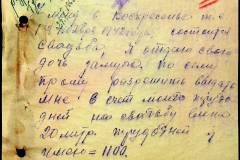 в воскресенье т.е.
1942 года, состоится
свадьба, я отдаю свою
дочь замуж, по сему
прошу разрешить выдать
мне в счет моего трудо
дней на свадьбу вина
20 литр. трудодней я
имею = 1100.